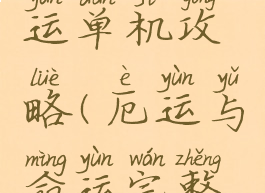 yùn dān jī gōng
运单机攻
lüè è yùn yǔ
略(厄运与
mìng yùn wán zhěng
命运完整